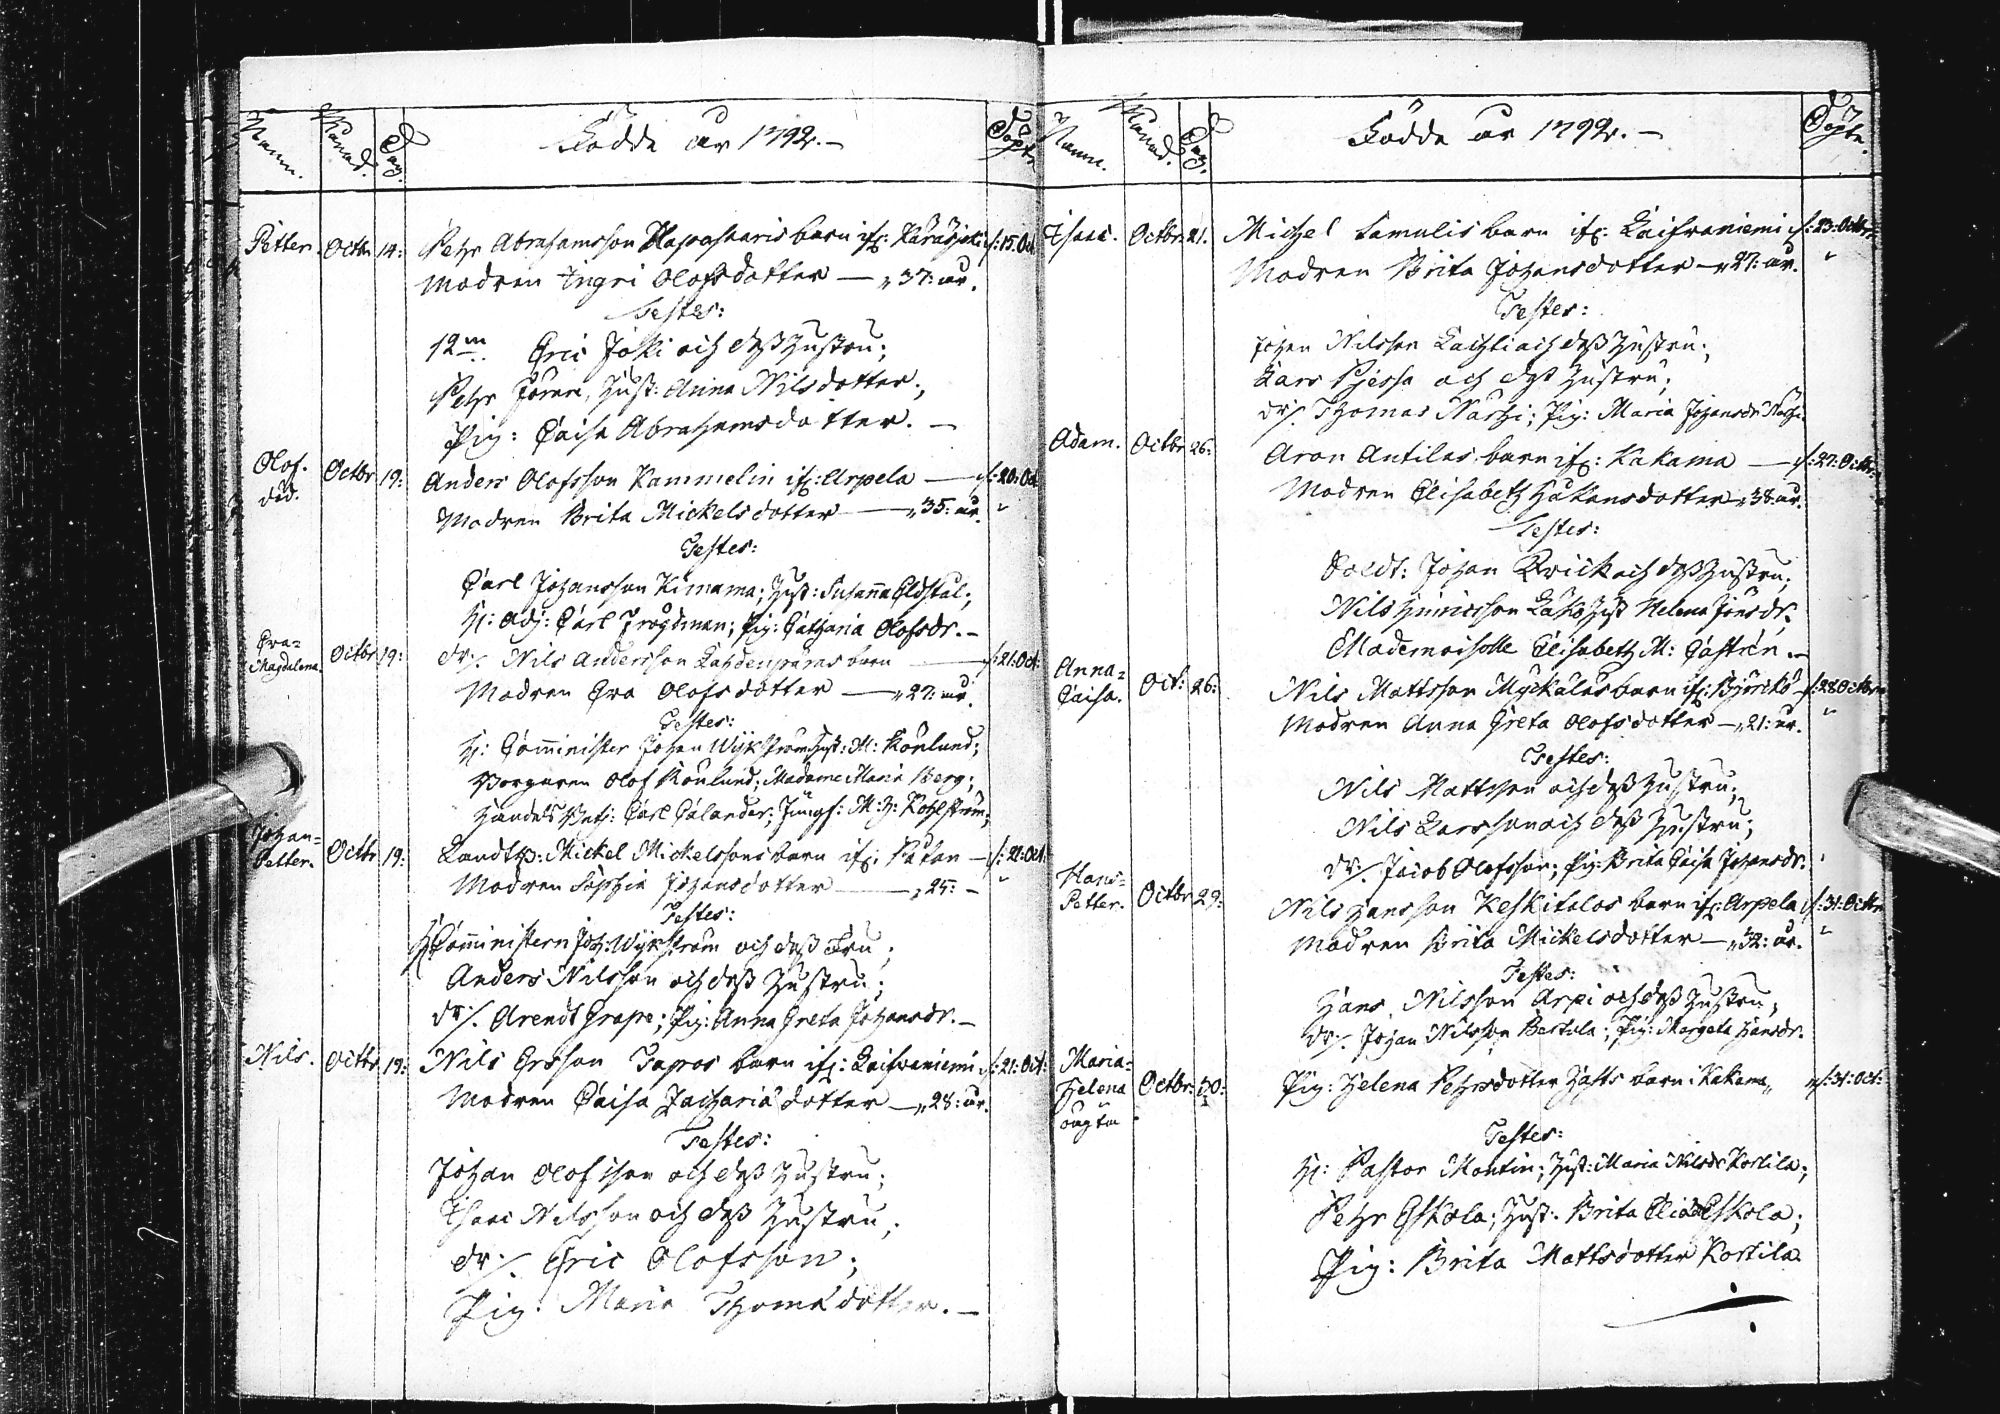 Namn. Månad. Dag. Födde år 1792. — Döpte
Petter. Octbr 14: Pehr Abrahamsson Kapastaris barn if: Karasjoki d: 15. Oct
Modren Ingri Olofsdotter — „ 37: år.
Testes:
12m Eric Joki och dess hustru;
Pehr hust: Anna Nilsdotter;
Pig: Caisa Abrahamsdotter. —
Olof. Octbr 19: Anders Olofsson Kammelin if: Arpela — d: 20: Oct
död. Modren Brita Mickelsdotter — „ 35: år. "
Testes:
Carl Johansson Kimama; hust: Susanna Eldstal;
H: Adj: Carl Frogdman; Pig: Catharia Olofsdr. —
Eva= Octbr 19: dr/. Nils Andersson barn — d: 21: Oct:
Magdalena Modren Eva Olofsdotter — „ 27: år.
Testes:
H: Comminister Johan Wykström hust: M: Rönlund;
Borgaren Olof Rönlund; Madame Maria Berg;
Handels Carl Calander; Jungf: M: H: Kohlström;
Johan= Petter. Octbr 19: Landtbr: Mickel Mickelssons barn if: — d: 21: Oct
Modren Sophia Johansdotter — „ 25: — "
Testes:
H Comministern Joh: Wykström och dess Fru;
Anders Nilsson och dess hustru;
dr/. Arendt Grape; Pig: Anna Greta Johansdr. —
Nils. Octbr 19: Nils Ersson Tapos barn if: Laifvaniemi d: 21: Oct:
Modren Caisa Zacharia dotter — „ 28: år.
Testes:
Johan Olofsson och dess hustru;
Isaac Nilsson och dess hustru;
dr/. Eric Olofsson;
Pig: Maria Thoma dotter. —
Namn. Månad. Dag. Födde år 1792. — Döpte.
Isaac. Octbr. 21. Michel Samulis barn if: Laifvaniemi d: 23: Octbr
Modren Brita Johansdotter — „ 27: år. "
Testes:
Johan Nilsson Lachti och dess hustru;
Lars Pjessa och dess hustru;
dr/. Thomas Närhi; Pig: Maria Johansdr Närhi.
Adam. Octbr 26: Aron Antilas barn if: Kakama — d: 27: Octbr
Modren Elisabeth Håkansdotter „ 38: år.
Testes:
Soldt: Johan Qvick och dess hustru;
Nils Hinricsson hust Helena Jönsdr.
Mademoiselle Elisabeth M: Castrén. —
Anna= Caisa. Oct: 26: Nils Mattsson Myckälas barn if: Björkö d: 28 Octbr
Modren Anna Greta Olofsdotter — „ 21: år. "
Testes:
Nils Mattsson och dess hustru;
Nils Larsson och dess hustru;
dr/. Jacob Olofsson; Pig: Brita Caisa Johansdr:
Hans= Petter. Octbr 29: Nils Hansson Keskitalos barn if: Arpela d: 31: Octbr
Modren Brita Mickelsdotter — „ 32: år. "
Testes:
Hans Nilsson Arpi och dess hustru;
dr/. Johan Nilsson Bertula; Pig: Margeta Hansdr.
Maria= Helena oägta Octbr: 30: Pig: Helena Pehrsdotter barn i Kakama „ d: 31: Oct:
Testes:
H: Pastor Montin; hust: Maria Nilsdr Kortila;
Pehr Eskola; hust. Brita Eliadr Eskola;
Pig: Brita Mattsdotter Kortila